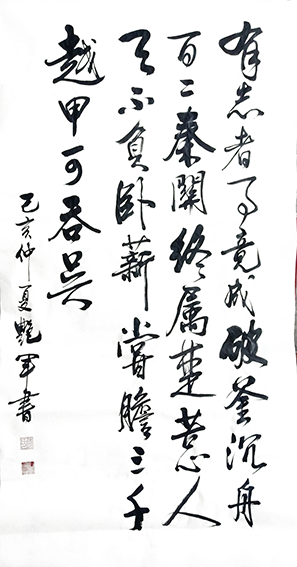 有志者事竟成破釜沉舟
百二秦關终属楚苦心人
天不負卧薪嘗膽三千
越甲可吞吴
己亥仲夏艷军書